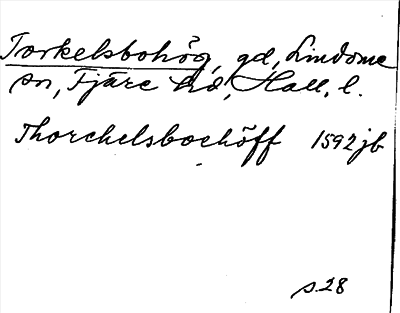 Torkelsbohög, gd, Lindome
sn, Fjäre hd, Hall. l.
Thorchelsboehöff 1592 jb
s. 28